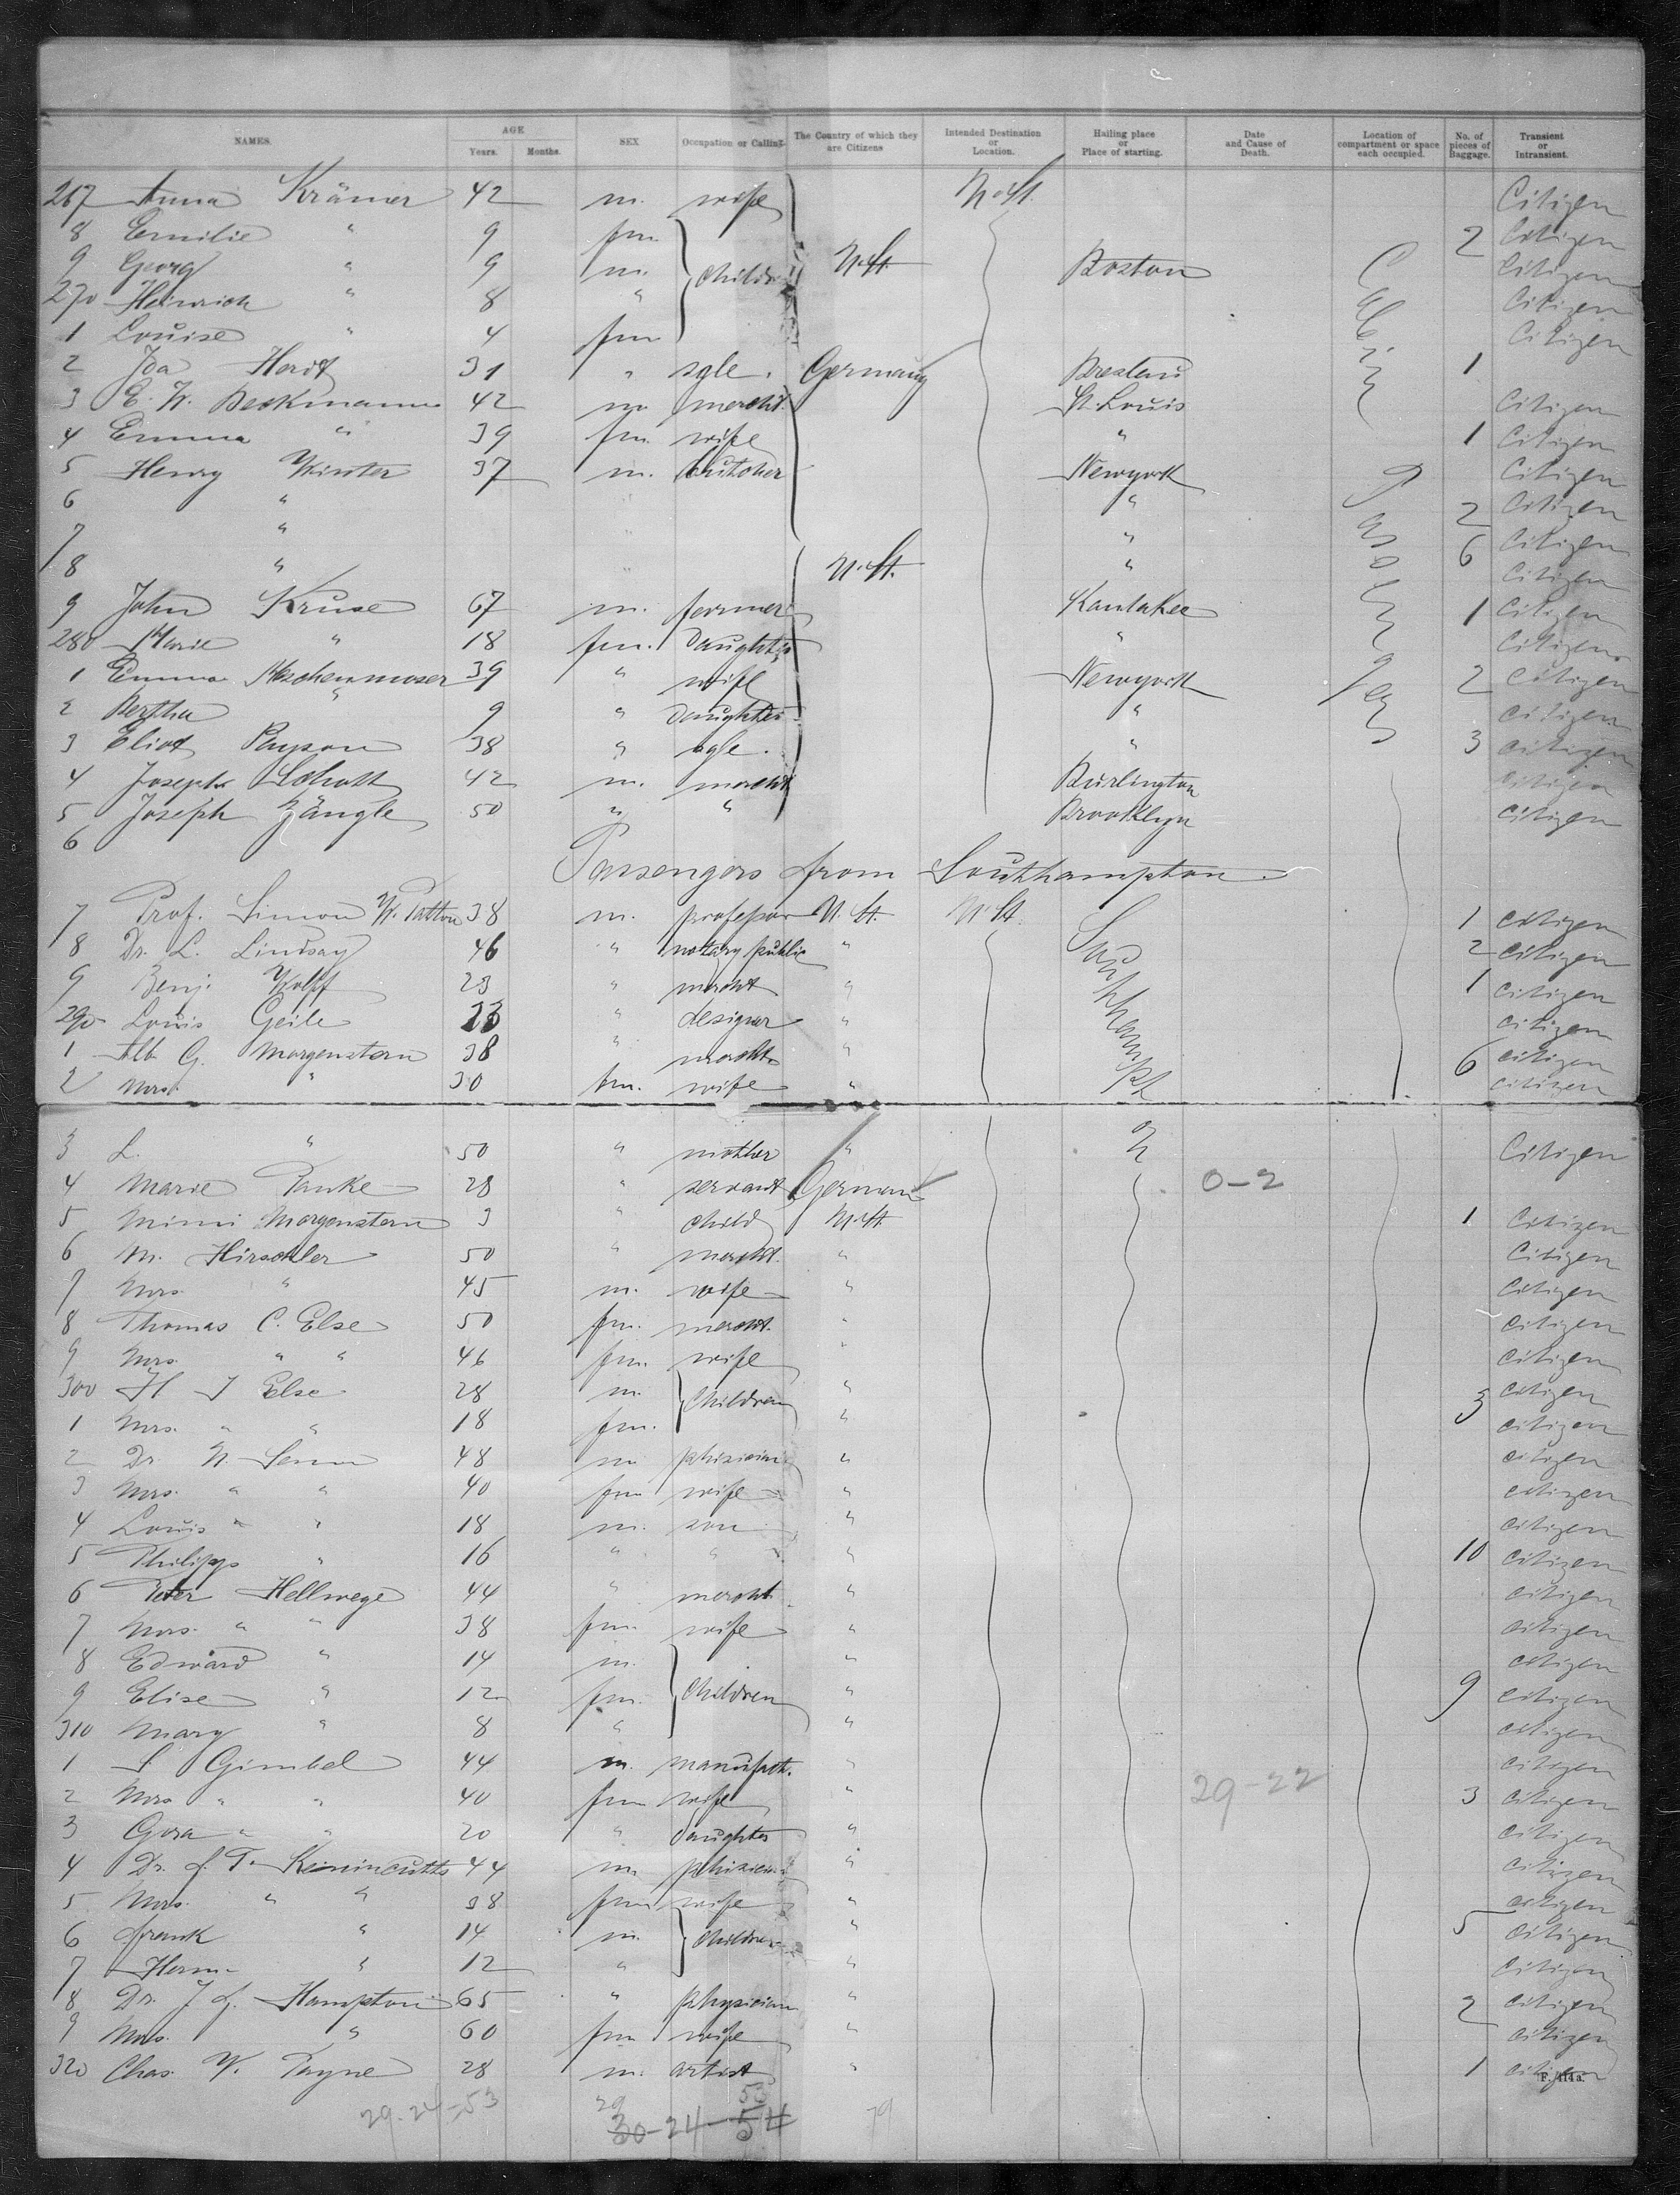 NAMES. AGE Years. Months. SEX Occupation or Calling. The Country of which they are Citizens Intended Destination or Location. Hailing place or Place of starting. Date and Cause of Death. Location of compartment or space each occupied. No. of pieces of Baggage. Transient or Intransient.
267 Anna Krämer 42 m. wife N. St. Citizen
8 Emilie " 9 fm. 2 Citizen
9 Georg " 9 m. children U. St. Boston Citizen
270 Heinrich " 8 " Citizen
1 Louise " 4 fm Citizen
2 Ida 31 " sgle. Germany Breslau 1
3 E. W. Beckmann 42 m mercht. St. Louis Citizen
4 Emma " 39 fm. wife " 1 Citizen
5 Henry Winter 37 m. butcher Newyork Citizen
6 " " 2 Citizen
7 " " 6 Citizen
8 " U. St. " Citizen
9 John Kruse 67 m. farmer Kankakee 1 Citizen
280 Marie " 18 fm. daughter " Citizen
1 Emma Aschenmoser 39 " wife Newyork 2 Citizen
2 Bertha " 9 " daughter " Citizen
3 Eliot Payson 38 " sgle. " 3 Citizen
4 Joseph Schott 42 m. mercht Burlington Citizen
5 Joseph Gängle 50 " " Brooklyn Citizen
6
Passengers from Southampton.
7 Prof. Simon W. Patton 38 m. professor U. St. U. St. Southampton 1 citizen
8 Dr. L. Lindsay 46 " notary public " 2 citizen
9 Benj. Wolff 23 " mercht " 1 citizen
290 Louis Geile 23 " designer " citizen
1 Alb. G. Morgenstern 38 " mercht " 6 citizen
2 Mrs. " 30 fm. wife " citizen
3 L. " 50 " mother " Citizen
4 Marie Panke 28 " servant German 0-2
5 Mimi Morgenstern 3 " child U. St. 1 Citizen
6 M. Hirschler 50 " mercht. " Citizen
7 Mrs. " 45 m. wife " Citizen
8 Thomas C. Else 50 fm. mercht. " citizen
9 Mrs. " " 46 fm. wife " citizen
300 H J Else 28 m. children " 3 citizen
1 Mrs. " " 18 fm. " citizen
2 Dr. N. Senn 48 m phisician " citizen
3 Mrs. " " 40 fm wife " citizen
4 Louis " " 18 m. son " citizen
5 Philipp " 16 " " " 10 citizen
6 Peter Hellwege 44 " mercht. " citizen
7 Mrs. " " 38 fm. wife " citizen
8 Edward " 14 m. " citizen
9 Elise " 12 fm. children " 9 citizen
310 Mary " 8 " " citizen
1 S Gimbel 44 m. manufact. " citizen
2 Mrs " " 40 fm wife " 29-22 3 citizen
3 Cora " " 20 " daughter " citizen
4 Dr. L. T. Keinincutts 44 m. phisician " citizen
5 Mrs. " " 38 fm wife " citizen
6 Frank " 14 m. children " 5 citizen
7 Herm. " 12 " " citizen
8 Dr. J. G. Hampton 65 " physician " 2 citizen
9 Mrs. " 60 fm wife " citizen
320 Chas. W. Payne 28 m. artist " 1 citizen
F. 114a.
29.24-53 29 53 79
30-24-54